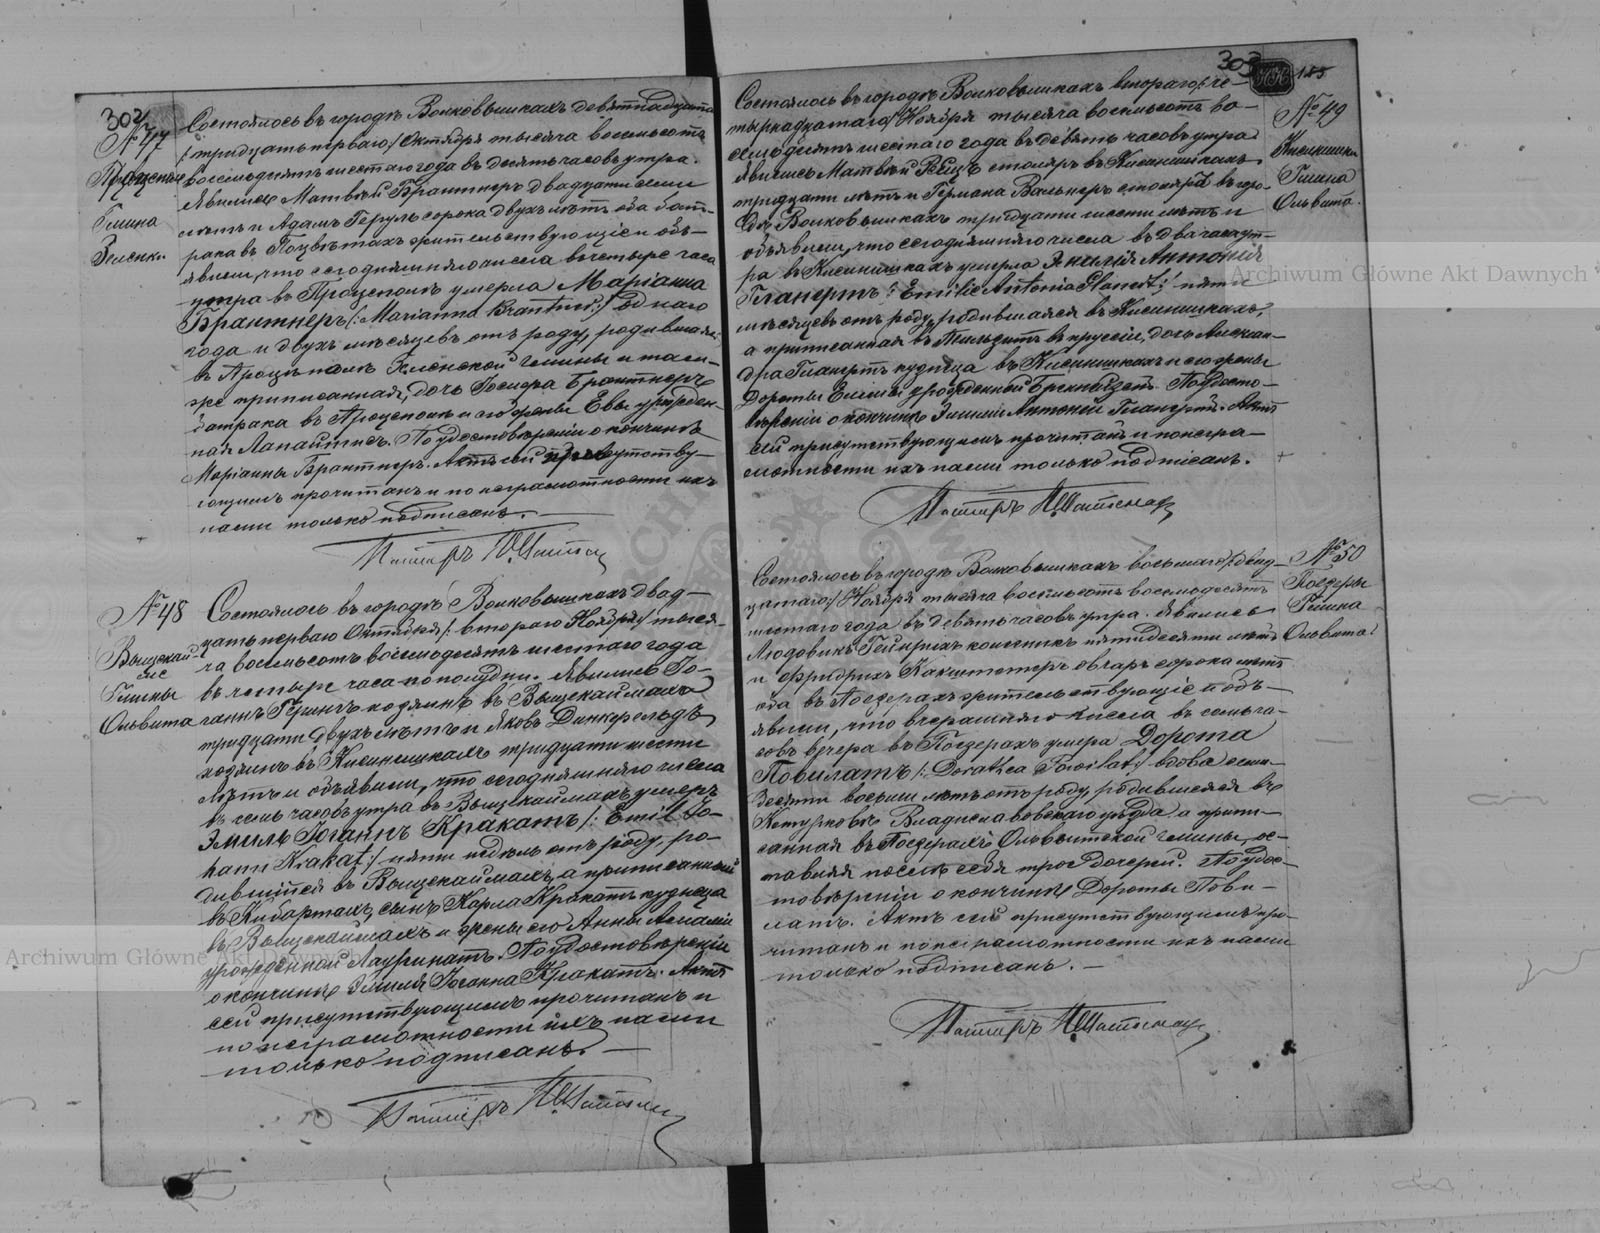 302
№ 47
Процепом
Гмина
Зеленки
Состоялось въ городѣ Волковышкахъ девятнадцатаго
/: тридцать перваго :/ Октября тысяча восемьсотъ
восемьдесятъ шестаго года въ десять часовъ утра.
Явились Матвѣй Брантнеръ двадцати семи
лѣтъ и Адамъ Геруль сорока двухъ лѣтъ оба бат-
рака въ жительствующіе и объ-
явили, что сегодняшняго числа въ четыре часа
утра въ Процепомѣ умерла Маріанна
Брантнеръ /: Marianna Brantner :/ одного
года и двухъ мѣсяцевъ отъ роду, родившаяся
въ Процепомѣ Зеленской гмины и тамъ-
же приписанная, дочь Госифа Брантнеръ
батрака въ Процепомѣ и его жены Евы урожден-
ная Лапайтисъ. По удостовѣреніи о кончинѣ
Маріанны Брантнеръ. Актъ сей присутству-
ющимъ прочитанъ и по неграмотности ихъ
нами только подписанъ. —
Пасторъ
№ 48
Гмины
Ольвита
Состоялось въ городѣ Волковышкахъ двад-
цать перваго Октября /: втораго Ноября :/ тыся-
ча восемьсотъ восемьдесятъ шестаго года
въ четыре часа пополудни. Явились Іо-
ганнъ Геринъ хозяинъ въ Выщекаймахъ
тридцати двухъ лѣтъ и Яковъ Динкфельдъ
хозяинъ въ Кисинишкахъ тридцати шести
лѣтъ и объявили, что сегодняшняго числа
въ семь часовъ утра въ Выщекаймахъ умеръ
Эмиль Іоганнъ Кракатъ /: Emil Jo-
hann Krakat :/ пяти недѣль отъ роду, ро-
дившійся въ Выщекаймахъ, а приписанный
въ Кибартахъ, сынъ Карла Кракатъ кузнеца
въ Выщекаймахъ и жены его Анны Амаліи
урожденной Лауринатъ. По удостовѣреніи
о кончинѣ Эмиля Іоганна Кракатъ. Актъ
сей присутствующимъ прочитанъ и
по неграмотности ихъ нами
только подписанъ. —
Пасторъ
303
185
№ 49
Кисинишки
Гмина
Ольвита.
Состоялось въ городѣ Волковышкахъ втораго /: че-
тырнадцатаго :/ Ноября тысяча восемьсотъ во-
семьдесятъ шестаго года въ девять часовъ утра
Явились Матвѣй столяръ въ Кисинишкахъ
тридцати лѣтъ и Германа Вальнеръ столяръ въ горо-
дѣ Волковышкахъ тридцати шести лѣтъ и
объявили, что сегодняшняго числа въ два часа ут-
ра въ Кисинишкахъ умерла Эмилія Антонія
Гланертъ /: Emilie Antonia Glanert :/ пяти
мѣсяцевъ отъ роду, родившаяся въ Кисинишкахъ,
а приписанная въ Тильзитъ въ пруссіи, дочь Алексан-
дра Гланертъ кузнеца въ Кисинишкахъ и его жены
Доротеи Емиліи урожденной По удосто-
вѣреніи о кончинѣ Эмиліи Антоніи Гланертъ. Актъ
сей присутствующимъ прочитанъ и по негра-
мотности ихъ нами только подписанъ.
Пасторъ
№ 50
Посдеры
Гмина
Ольвита
Состоялось въ городѣ Волковышкахъ восьмаго /: двад-
цатаго :/ Ноября тысяча восемьсотъ восемьдесятъ
шестаго года въ девять часовъ утра. Явились
Людовикъ Гейнрихъ пятидесяти лѣтъ
и Фридрихъ овчаръ сорока лѣтъ
оба въ Посдерахъ жительствующіе и объ-
явили, что вчерашняго числа въ семь ча-
совъ вечера въ Посдерахъ умерла Дорота
Повилатъ /: Dorathea Powilat :/ вдова семи-
десяти восьми лѣтъ отъ роду, родившаяся въ
Владиславовскаго уѣзда а припи-
санная въ Посдерахъ Ольвитской гмины, ос-
тавляя послѣ себя трое дочерей. По удос-
товѣреніи о кончинѣ Дороты Пови-
латъ. Актъ сей присутствующимъ про-
читанъ и по неграмотности ихъ нами
только подписанъ. —
Пасторъ
Archiwum Główne Akt Dawnych
Archiwum Główne Akt Dawnych